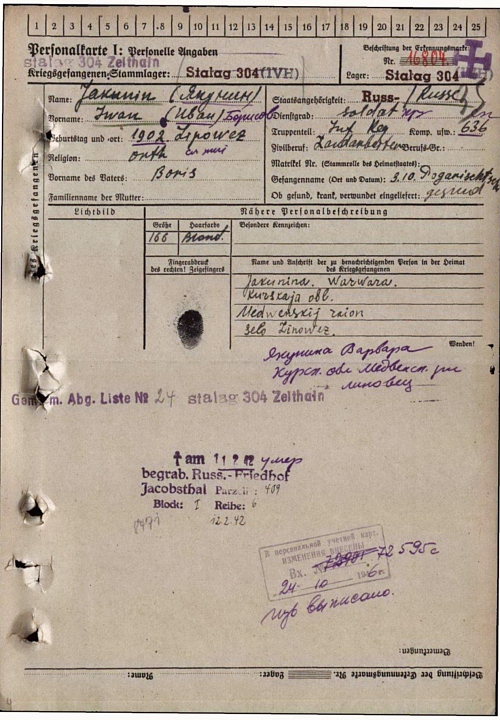 1 2 3 4 5 6 7 8 9 10 11 12 13 14 15 16 17 18 19 20 21 22 23 24 25
Personalkarte I: Personelle Angaben
Beschriftung der Erkennungsmarke
stalag 304 Zeithain
Nr. 16804
Kriegsgefangenen-Stammlager: Stalag 304 (IVH)
Lager: Stalag 304
des Kriegsgefangenen
Name: Jakunin (Якунин)
Staatsangehörigkeit: Russ-
Vorname: Iwan (Иван) Борисов
Dienstgrad: soldat
Geburtstag und -ort: 1902
Truppenteil: Inf Reg Komp. usw.: 636
Zivilberuf: Landarbeiter Berufs-Gr.:
Religion: orth
Matrikel Nr. (Stammrolle des Heimatstaates):
Vorname des Vaters: Boris
Gefangennahme (Ort und Datum): 3.10.
Familienname der Mutter:
Ob gesund, krank, verwundet eingeliefert: gesund
Lichtbild
Nähere Personalbeschreibung
Größe Haarfarbe Besondere Kennzeichen:
166 Blond.
Fingerabdruck
des rechten! Zeigefingers
Name und Anschrift der zu benachrichtigenden Person in der Heimat
des Kriegsgefangenen
Jakunina. Warwara.
Kurskaja obl.
Medwenskij raion
selo Linowez.
Wenden!
Якунина Варвара
Курск. обл Медвенск.
линовец
Abg. Liste № 24 stalag 304 Zeithain
† am 11 2 42 умер
begrab. Russ.-Friedhof
Jacobsthal Parzell: 409
Block: I Reihe: 6
12.2.42
В персональной учетной карт.
ИЗМЕНЕНИЯ ВНЕСЕНЫ
Вх. № 72595с
24 10 1946г.
выписано.
Bemerkungen:
Beschriftung der Erkennungsmarke Nr. Lager: Name: